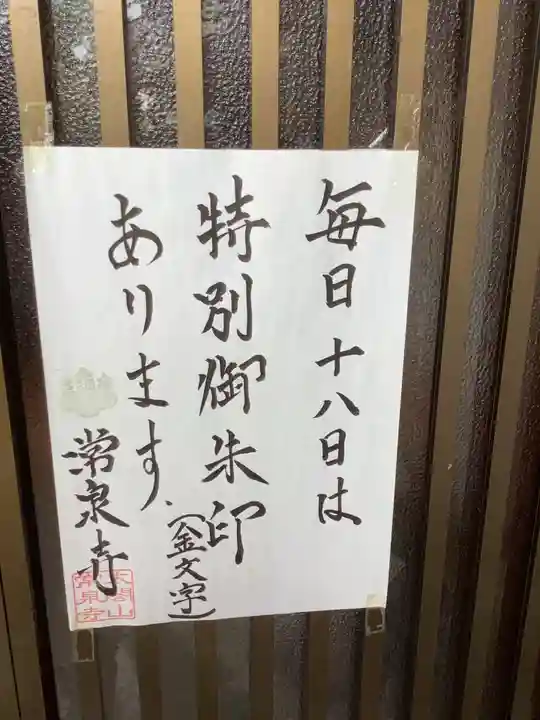 毎日十八日は
特別御朱印
(金文字)
あります、
常泉寺
太閤山
常泉寺